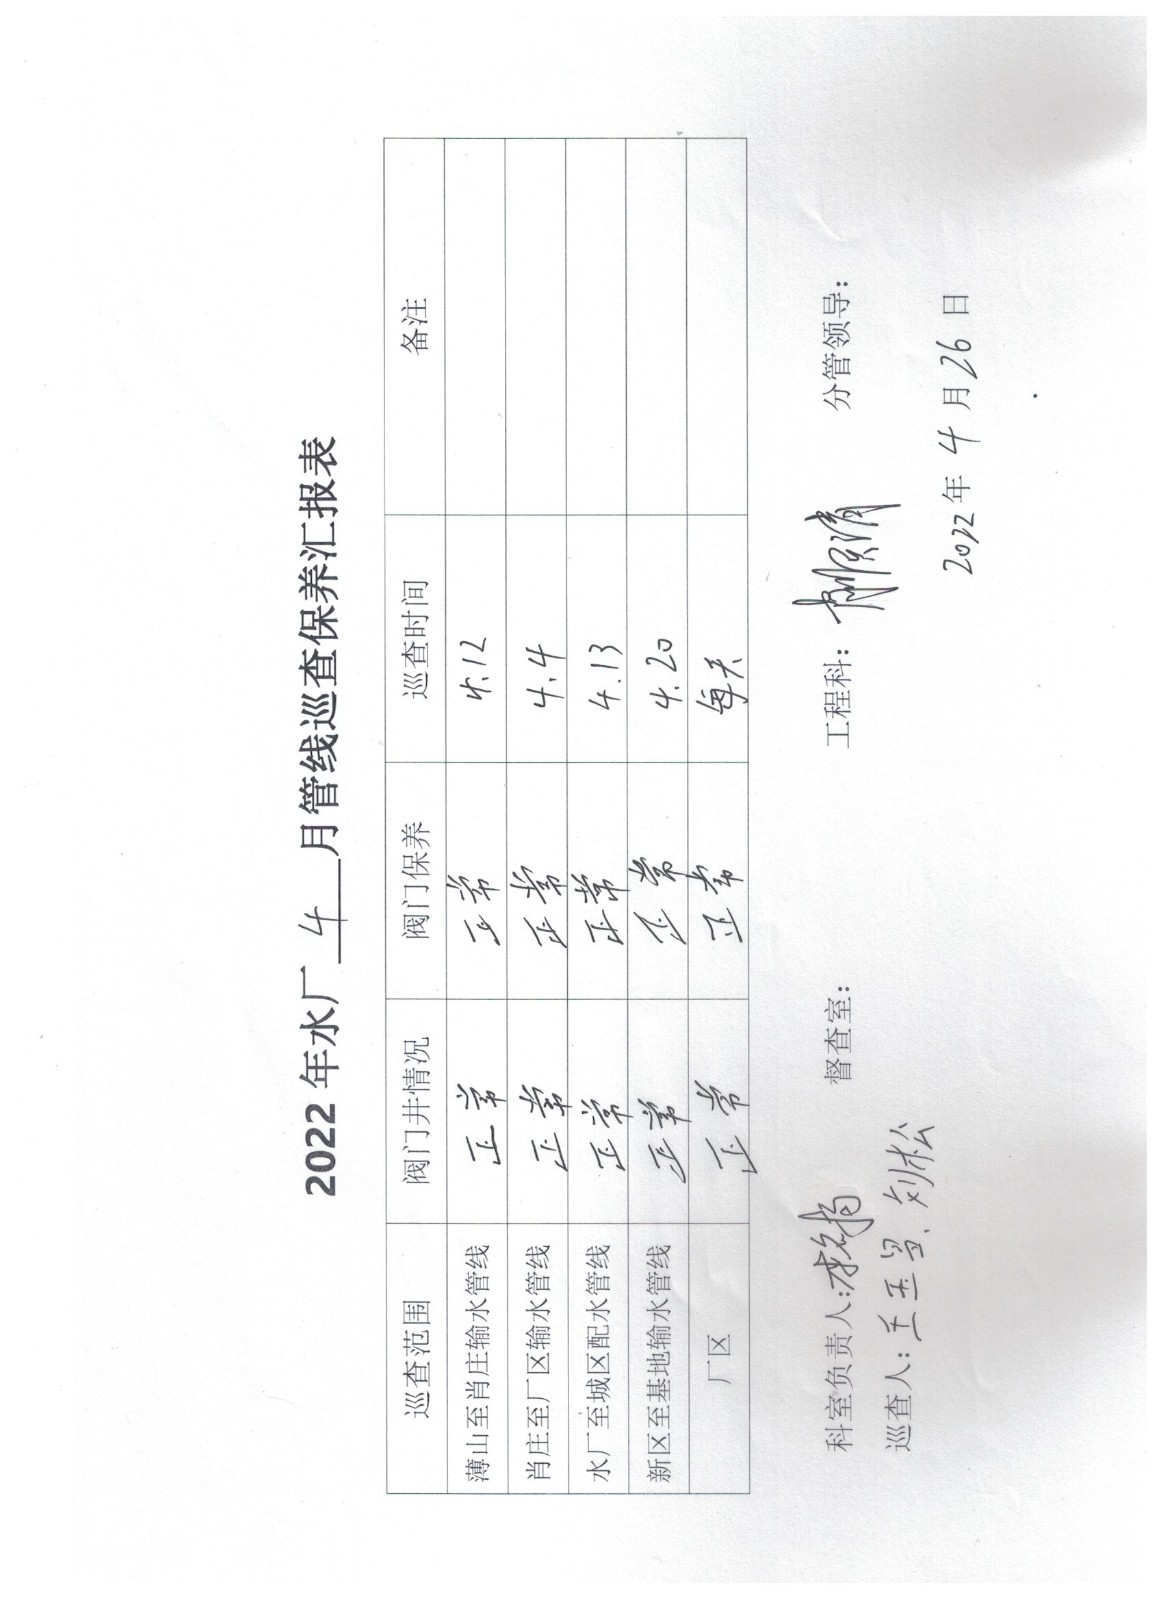 2022年水厂 4 月管线巡查保养汇报表
巡查范围 阀门井情况 阀门保养 巡查时间 备注
薄山至肖庄输水管线 正常 正常 4.12
肖庄至厂区输水管线 正常 正常 4.4
水厂至城区配水管线 正常 正常 4.13
新区至基地输水管线 正常 正常 4.20
厂区 正常 正常 每天
科室负责人: 督查室: 工程科: 分管领导:
巡查人: 王玉 、刘松
2022年 4 月 26 日